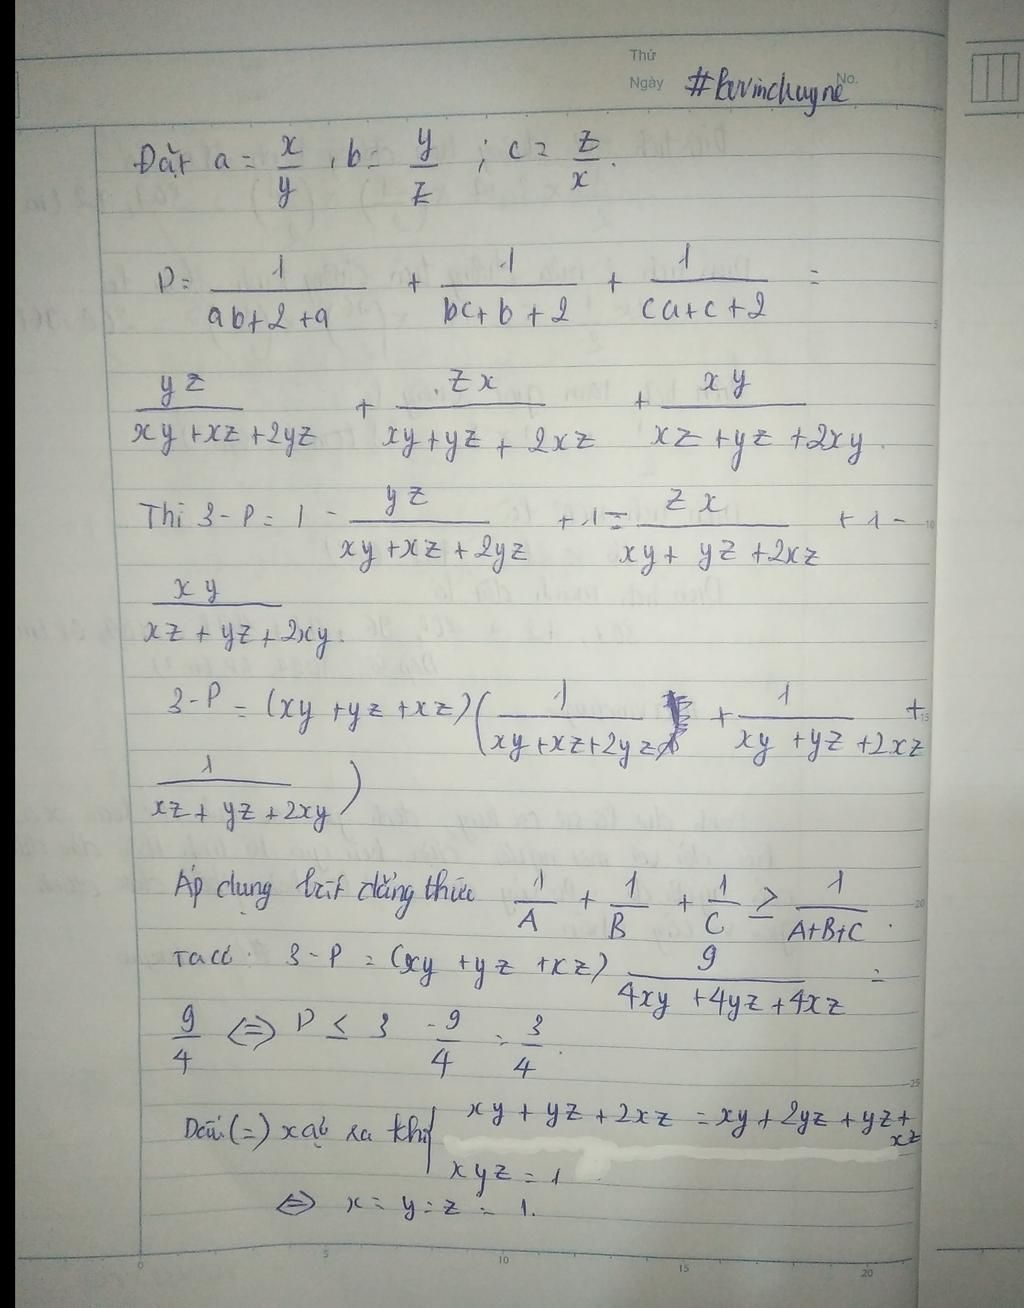 Thứ
Ngày #Bevinchuyne No.
Đặt a = x/y , b = y/z ; c = z/x .
P = 1/(ab+2+a) + 1/(bc+b+2) + 1/(ca+c+2) =
yz/(xy+xz+2yz) + zx/(xy+yz+2xz) + xy/(xz+yz+2xy) .
Thì 3-P = 1 - yz/(xy+xz+2yz) + 1 - zx/(xy+yz+2xz) + 1 -
xy/(xz+yz+2xy) .
3-P = (xy+yz+xz)(1/(xy+xz+2yz) + 1/(xy+yz+2xz) +
1/(xz+yz+2xy))
Áp dụng bất đẳng thức 1/A + 1/B + 1/C ≥ 1/(A+B+C) .
Ta có 3-P = (xy+yz+xz) 9/(4xy+4yz+4xz) =
9/4 <=> P ≤ 3 - 9/4 = 3/4 .
Dấu (=) xảy ra khi { xy+yz+2xz = xy+2yz+yz+
xz
xyz = 1
<=> x = y = z = 1.